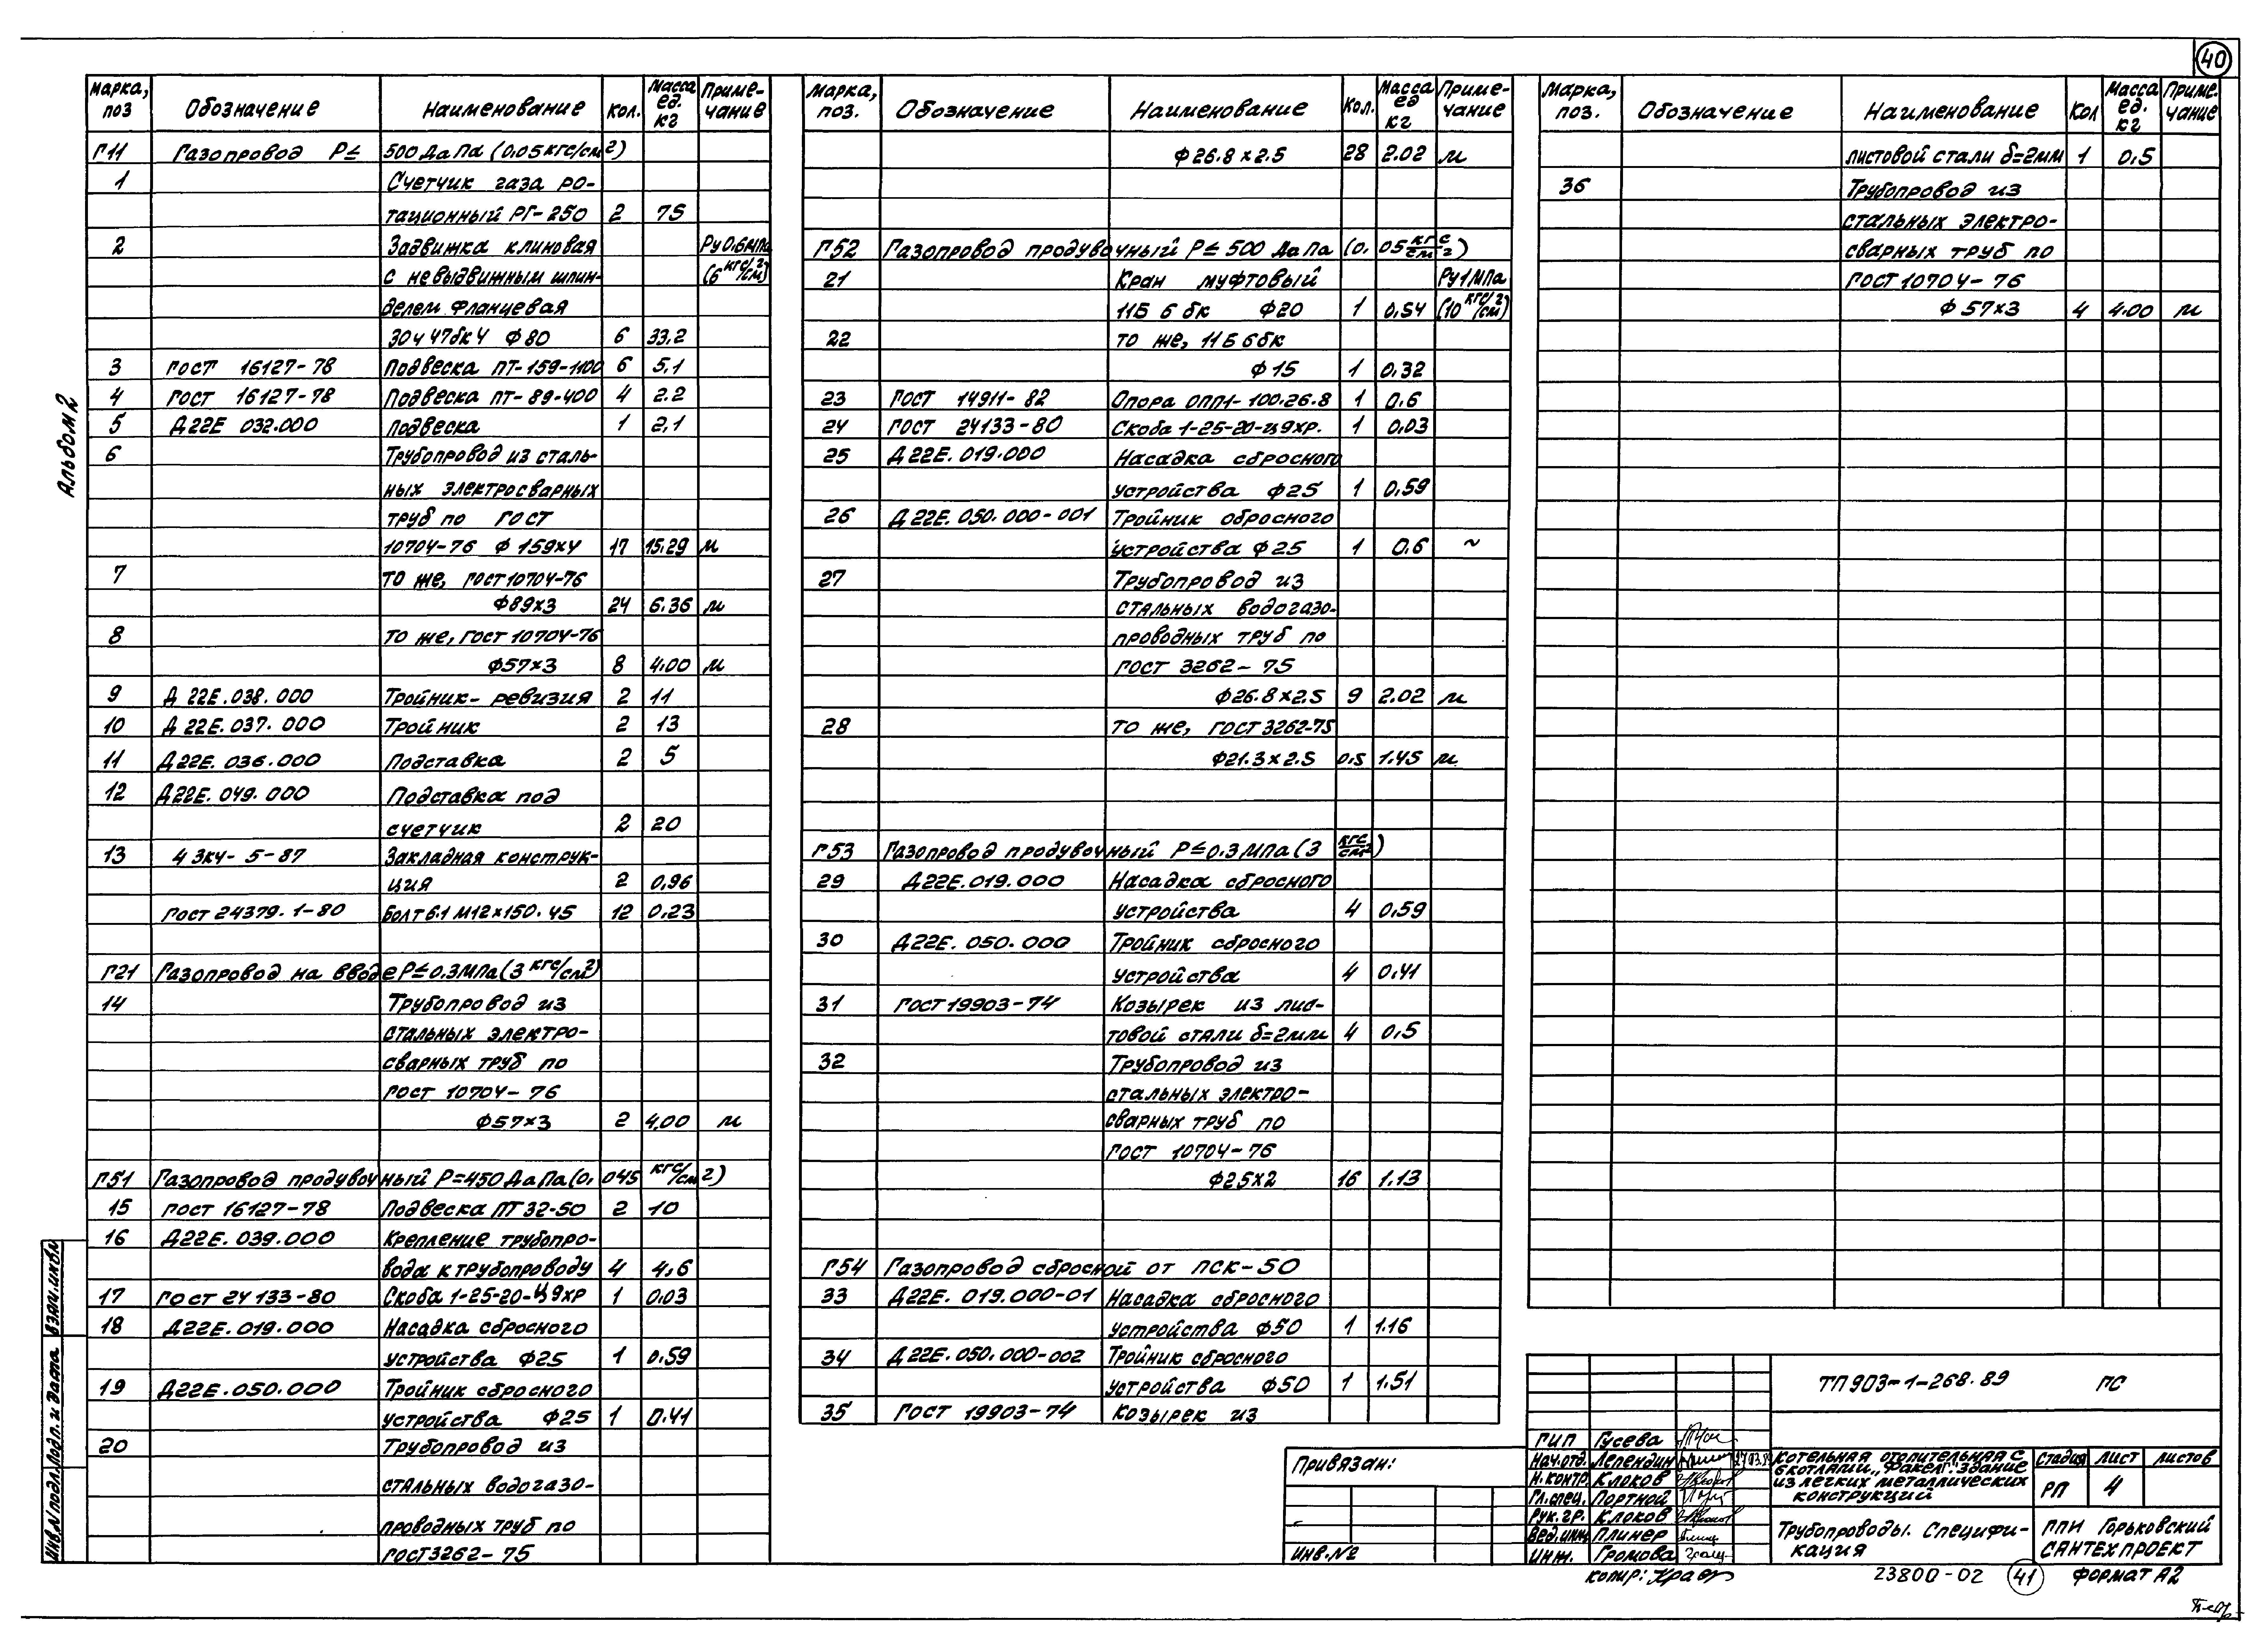 40
Альбом 2
Марка, поз Обозначение Наименование Кол. Масса ед. кг Примечание
Г11 Газопровод Р≤ 500 ДаПа (0.05 кгс/см2)
1 Счетчик газа ро-
тационный РГ-250 2 75
2 Задвижка клиновая Ру0.6мпа
с невыдвижным шпин- (6 кгс/см2)
делем фланцевая
30ч 47бк4 Ф80 6 33,2
3 ГОСТ 16127-78 Подвеска ПТ-159-1100 6 5,1
4 ГОСТ 16127-78 Подвеска ПТ-89-400 4 2.2
5 Д22Е 032.000 Подвеска 1 2,1
6 Трубопровод из сталь-
ных электросварных
труб по ГОСТ
10704-76 Ф 159х4 17 15.29 м
7 То же, ГОСТ 10704-76
Ф89х3 24 6.36 м
8 То же, ГОСТ 10704-76
Ф57х3 8 4.00 м
9 Д 22Е.038.000 Тройник-ревизия 2 11
10 Д 22Е.037.000 Тройник 2 13
11 Д22Е.036.000 Подставка 2 5
12 Д22Е.049.000 Подставка под
счетчик 2 20
13 4 ЗК4-5-87 Закладная конструк-
ция 2 0,96
ГОСТ 24379.1-80 Болт 6.1 М12х150.45 12 0.23
Г21 Газопровод на вводе Р≤0.3МПа(3 кгс/см2)
14 Трубопровод из
стальных электро-
сварных труб по
ГОСТ 10704-76
Ф57х3 2 4.00 м
Г51 Газопровод продувочный Р=450 ДаПа(0,045 кгс/см2)
15 ГОСТ 16127-78 Подвеска ПТ 32-50 2 10
16 Д22Е.039.000 Крепление трубопро-
вода к трубопроводу 4 4,6
17 ГОСТ 24133-80 Скоба 1-25-20-Ц9хр 1 0.03
18 Д22Е.019.000 Насадка сбросного
устройства Ф25 1 0.59
19 Д22Е.050.000 Тройник сбросного
устройства Ф25 1 0.41
20 Трубопровод из
стальных водогазо-
проводных труб по
ГОСТ 3262-75
Марка, поз. Обозначение Наименование Кол. Масса ед кг Примечание
Ф26.8х2.5 28 2.02 м
Г52 Газопровод продувочный Р≤500 ДаПа (0.05 кгс/см2)
21 Кран муфтовый Ру1мпа
11Б 6 бк Ф20 1 0,54 (10 кгс/см2)
22 То же, 11Б 6 бк
Ф15 1 0.32
23 ГОСТ 14911-82 Опора ОПП1-100.26.8 1 0.6
24 ГОСТ 24133-80 Скоба 1-25-20-Ц9хр. 1 0.03
25 Д22Е.019.000 Насадка сбросного
устройства Ф25 1 0.59
26 Д22Е.050.000-001 Тройник сбросного
устройства Ф25 1 0.6 ~
27 Трубопровод из
стальных водогазо-
проводных труб по
ГОСТ 3262-75
Ф26.8х2.5 9 2.02 м
28 То же, ГОСТ 3262-75
Ф21.3х2.5 0.5 1.45 м
Г53 Газопровод продувочный Р≤0.3МПа (3 кгс/см2)
29 Д22Е.019.000 Насадка сбросного
устройства 4 0.59
30 Д22Е.050.000 Тройник сбросного
устройства 4 0.41
31 ГОСТ 19903-74 Козырек из лис-
товой стали δ=2мм 4 0.5
32 Трубопровод из
стальных электро-
сварных труб по
ГОСТ 10704-76
Ф25х2 16 1.13
Г54 Газопровод сбросной от ПСК-50
33 Д22Е.019.000-01 Насадка сбросного
устройства Ф50 1 1.16
34 Д22Е.050.000-002 Тройник сбросного
устройства Ф50 1 1.51
35 ГОСТ 19903-74 Козырек из
Марка, поз. Обозначение Наименование Кол Масса ед. кг Примечание
листовой стали δ=2мм 1 0,5
36 Трубопровод из
стальных электро-
сварных труб по
ГОСТ 10704-76
Ф57х3 4 4.00 м
Инв.№подл. Подп. и дата Взам.инв.№
Привязан:
Инв.№
ТП 903-1-268.89 ГС
ГИП Гусева
Нач.отд. Лепендин
Н.контр. Клоков
Гл.спец. Портной
Рук.гр. Клоков
Вед.инж Плинер
Инж. Громова
Котельная отопительная с
6 котлами „Факел-Г". Здание
из легких металлических
конструкций
Стадия Лист Листов
РП 4
Трубопроводы. Специфи-
кация
ГПИ Горьковский
Сантехпроект
Копир:
23800-02 41 Формат А2